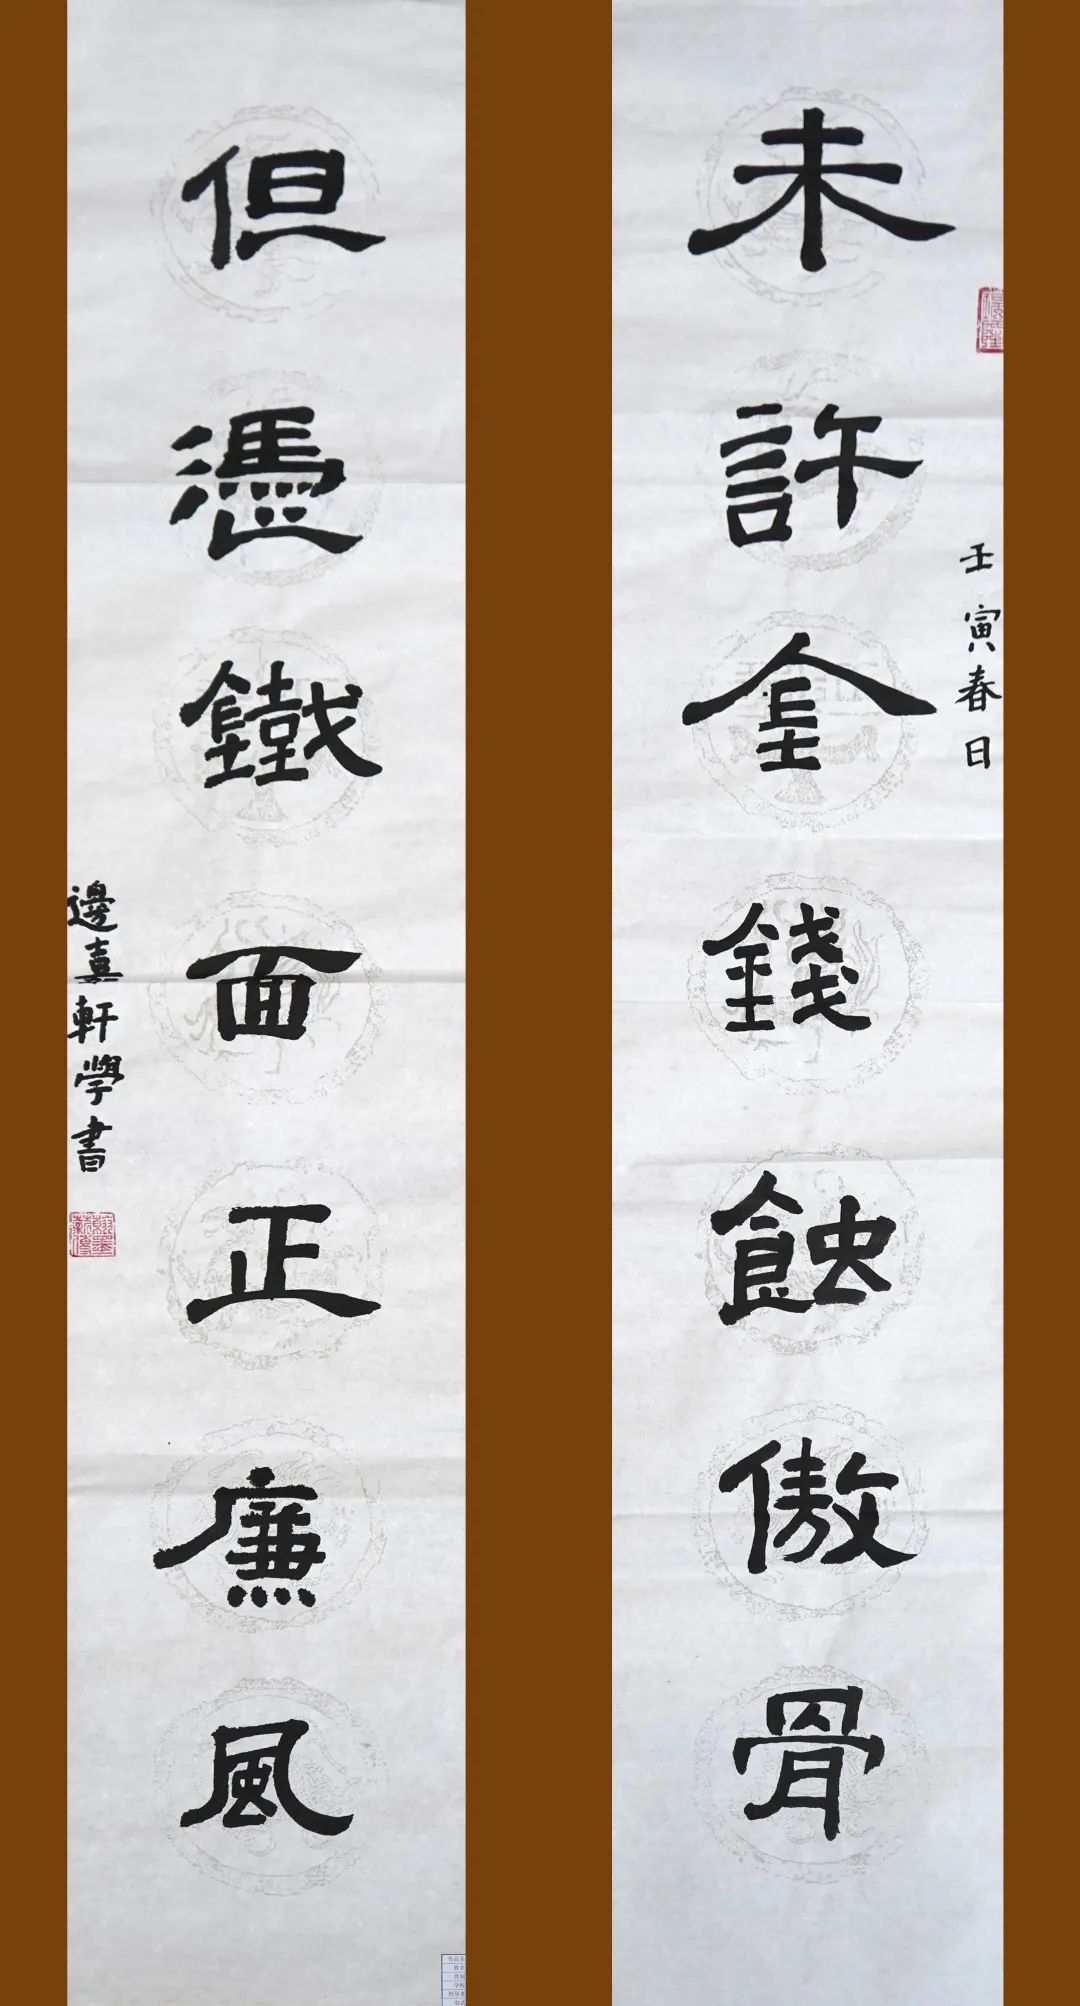 未許金錢蝕傲骨
壬寅春日
但憑鐵面正廉風
邊嘉軒學書